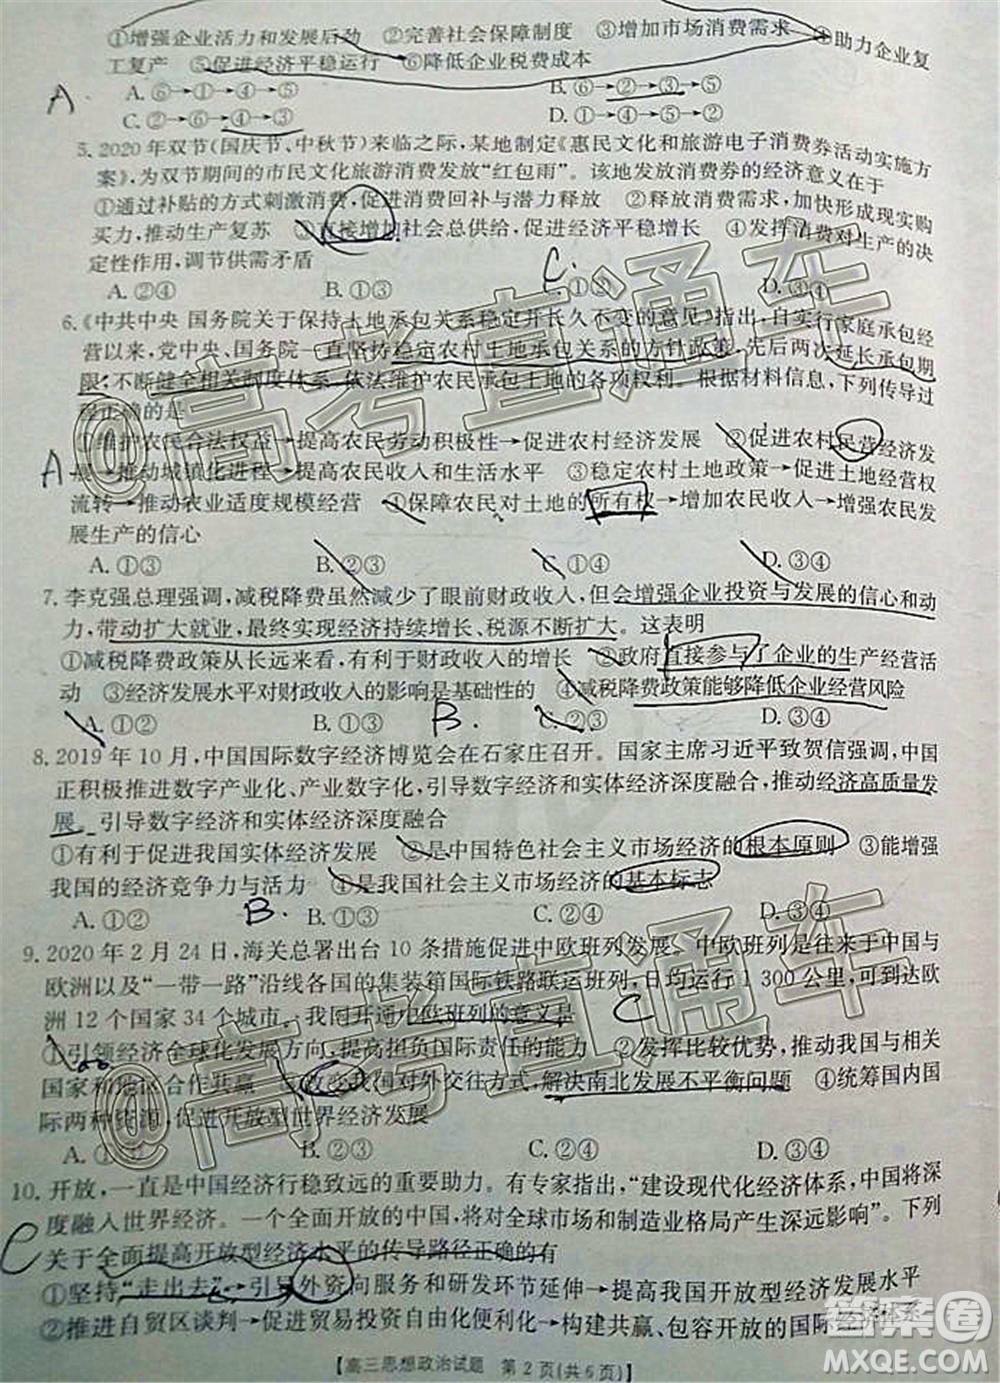 ①增强企业活力和发展后劲 ②完善社会保障制度 ③增加市场消费需求 ④助力企业复
工复产 ⑤促进经济平稳运行 ⑥降低企业税费成本
A. ⑥→①→④→⑤ B. ⑥→②→③→⑤
A
C. ②→⑥→④→③ D. ①→③→④→⑤
5. 2020年双节(国庆节、中秋节)来临之际,某地制定《惠民文化和旅游电子消费券活动实施方
案》,为双节期间的市民文化旅游消费发放“红包雨”。该地发放消费券的经济意义在于
①通过补贴的方式刺激消费,促进消费回补与潜力释放 ②释放消费需求,加快形成现实购
买力,推动生产复苏 ③直接增加社会总供给,促进经济平稳增长 ④发挥消费对生产的决
定性作用,调节供需矛盾
C.
A. ②④ B. ①③ C. ①② D. ③④
6.《中共中央 国务院关于保持土地承包关系稳定并长久不变的意见》指出,自实行家庭承包经
营以来,党中央、国务院一直坚持稳定农村土地承包关系的方针政策,先后两次延长承包期
限,不断健全相关制度体系,依法维护农民承包土地的各项权利。根据材料信息,下列传导过
程正确的是
①维护农民合法权益→提高农民劳动积极性→促进农村经济发展 ②促进农村民营经济发
A 展→推动城镇化进程→提高农民收入和生活水平 ③稳定农村土地政策→促进土地经营权
流转→推动农业适度规模经营 ④保障农民对土地的所有权→增加农民收入→增强农民发
展生产的信心
A. ①③ B. ②④ C. ①④ D. ③④
7. 李克强总理强调,减税降费虽然减少了眼前财政收入,但会增强企业投资与发展的信心和动
力,带动扩大就业,最终实现经济持续增长、税源不断扩大。这表明
①减税降费政策从长远来看,有利于财政收入的增长 ②政府直接参与了企业的生产经营活
动 ③经济发展水平对财政收入的影响是基础性的 ④减税降费政策能够降低企业经营风险
A. ①② B. ①③ B. C. ②③ D. ③④
8. 2019年10月,中国国际数字经济博览会在石家庄召开。国家主席习近平致贺信强调,中国
正积极推进数字产业化、产业数字化,引导数字经济和实体经济深度融合,推动经济高质量发
展。引导数字经济和实体经济深度融合
①有利于促进我国实体经济发展 ②是中国特色社会主义市场经济的根本原则 ③能增强
我国的经济竞争力与活力 ④是我国社会主义市场经济的基本标志
A. ①② B. B. ①③ C. ②④ D. ③④
9. 2020年2月24日,海关总署出台10条措施促进中欧班列发展。中欧班列是往来于中国与
欧洲以及“一带一路”沿线各国的集装箱国际铁路联运班列,日均运行1 300公里,可到达欧
洲12个国家34个城市。我国开通中欧班列的意义是 C
①引领经济全球化发展方向,提高担负国际责任的能力 ②发挥比较优势,推动我国与相关
国家和地区合作共赢 ③改变我国对外交往方式,解决南北发展不平衡问题 ④统筹国内国
际两种资源,促进开放型世界经济发展
A. ①③ B. ②③ C. ②④ D. ③④
10. 开放,一直是中国经济行稳致远的重要助力。有专家指出,“建设现代化经济体系,中国将深
度融入世界经济。一个全面开放的中国,将对全球市场和制造业格局产生深远影响”。下列
C 关于全面提高开放型经济水平的传导路径正确的有
①坚持“走出去”→引导外资向服务和研发环节延伸→提高我国开放型经济发展水平
②推进自贸区谈判→促进贸易投资自由化便利化→构建更加包容的国际经济体系
【高三思想政治试题 第2页(共6页)】
@高考直通车
@高考直通车
答案圈
MXQE.COM